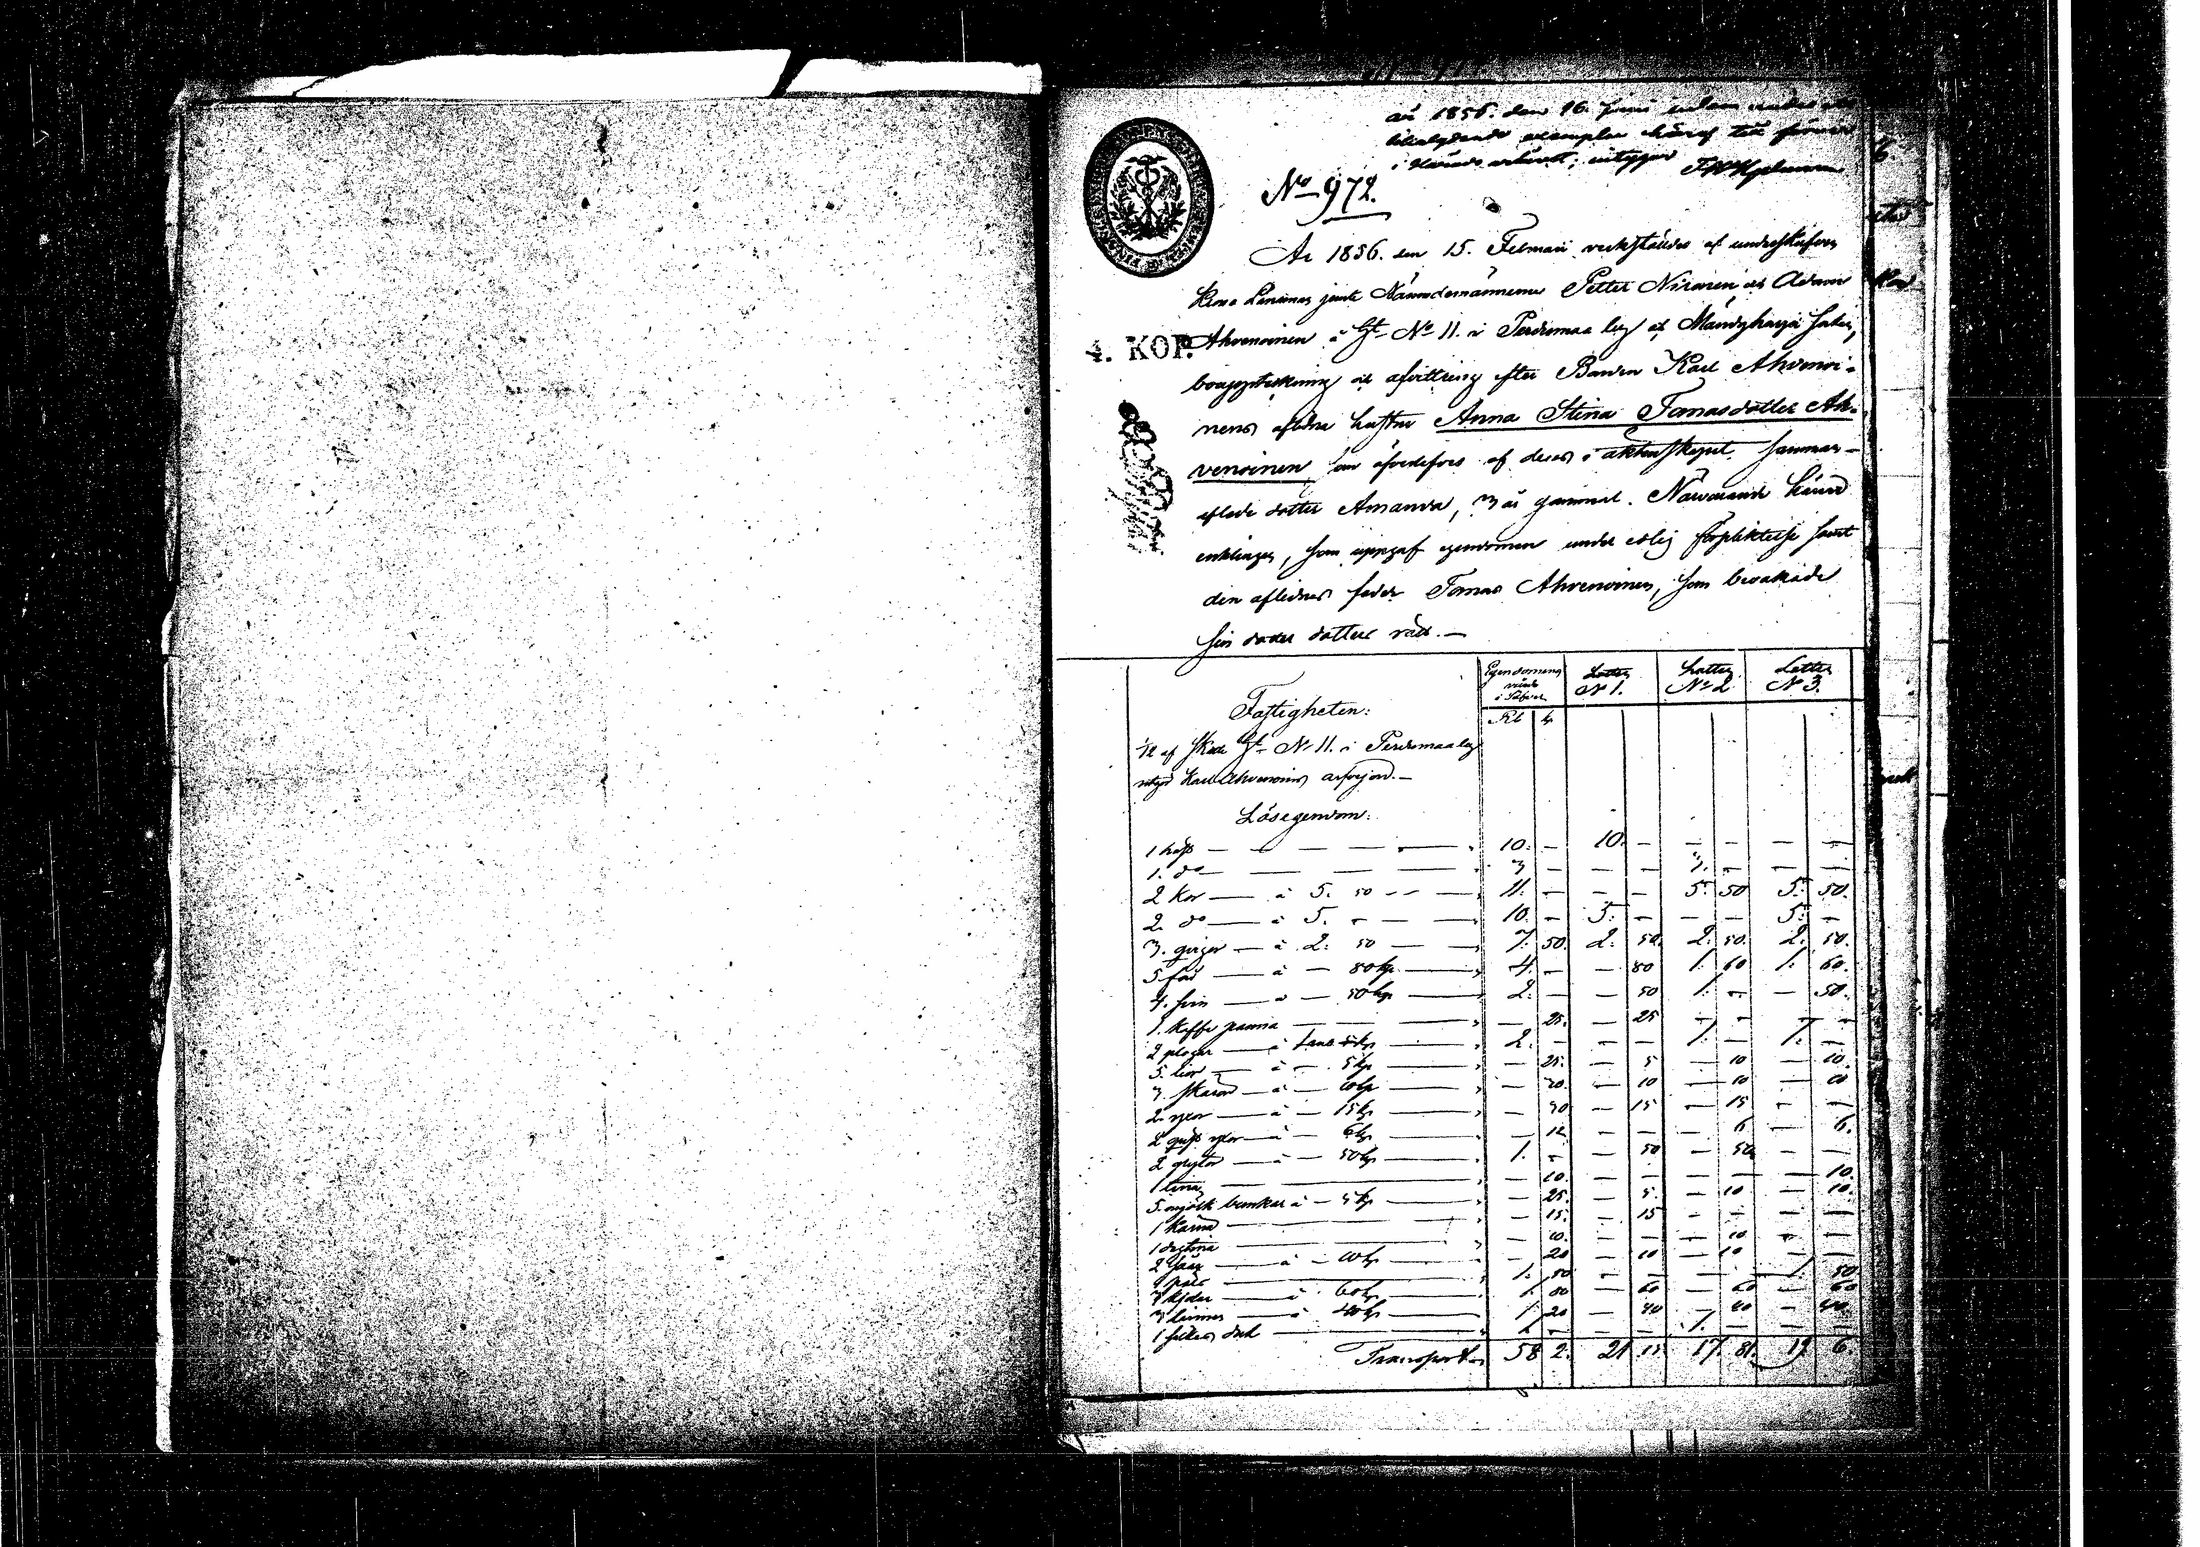 år 1856. den 16. Juni inlem
likalydande exemplar häraf till förvar
i Härads arkivet; intygar
No 972.
År 1856. den 15. Februari verkställdes af underskrifven
Krono Länsman jemte Nämndemännerne Petter Nironen och Adam
4. KOP.
Ahvenoinen å Gd No 11. i Perdomaa by af Mäntyharju socken,
bouppteckning och afvittring efter Bonden Karl Ahvenoi-
nens aflidna hustru Anna Stina Tomasdotter Ah-
venoinen som öfverlefves af deras i äktenskapet samman-
aflade dotter Amanda, 3 år gammal. Närvarande hürvid
enklingen, som uppgaf egendomen under edlig förpliktelse samt
den aflidnas fader Tomas Ahvenoinen, som bevakade
sin dotter dotters rätt. —
Egendomens värde i Silfver
Lotten No 1.
Lotten No 2
Lotten No 3.
Fastigheten:
Rb k
1/12 af Skatte Gd No 11. i Perdomaa by
utgör Karl Ahvenoinens arfvejord. —
Lösegendom:
1 häst — 10. — 10. — — — — —
1. do — 3 — — — 3. — — —
2 kor — à 5. 50 — 11. — — — 5. 50 5. 50.
2. do — à 5. — 10. — 5. — — — 5. —
3. qvigor — à 2. 50 — 7. 50. 2. 50. 2. 50. 2. 50.
5 får — à — 80 kp. — 4. — — 80 1. 60 1. 60.
4. svin — à — 50 kp — 2. — — 50 1. — — 50.
1. kaffe panna — — 25. — 25 — — — —
2 plogar — 2. — — — 1. — 1. —
5. liar — à — 5 kp — — 25. — 5 — 10 — 10.
3. skäror — à — 10 kp — — 30. — 10 — 10 — 10
2. yxor — à — 15 kp — — 30 — 15 — 15 — —
2 — à — 6 kp — — 12 — — — 6 — 6.
2 grytor — à — 50 kp — 1. — — 50 — 50 — —
1 tina — — 10. — — — — — 10.
5. mjölk bunkar à — 5 kp — — 25. — 5. — 10 — 10.
1 kanna — — 15. — 15 — — — —
1 — — 10. — — — 10 — —
2 — à — 10 kp — — 20 — 10 — 10 — —
1 päls — 1. 50 — — — — 1. 50
3 kjolar — à 60 kp — 1. 80 — 60 — 60 — 60
3 linnen — à 40 kp — 1. 20 — 40 — 40 — 40.
1 silkes duk — 1. — — — 1. — — —
Transport 58 2. 21 15. 17. 81. 19 6.